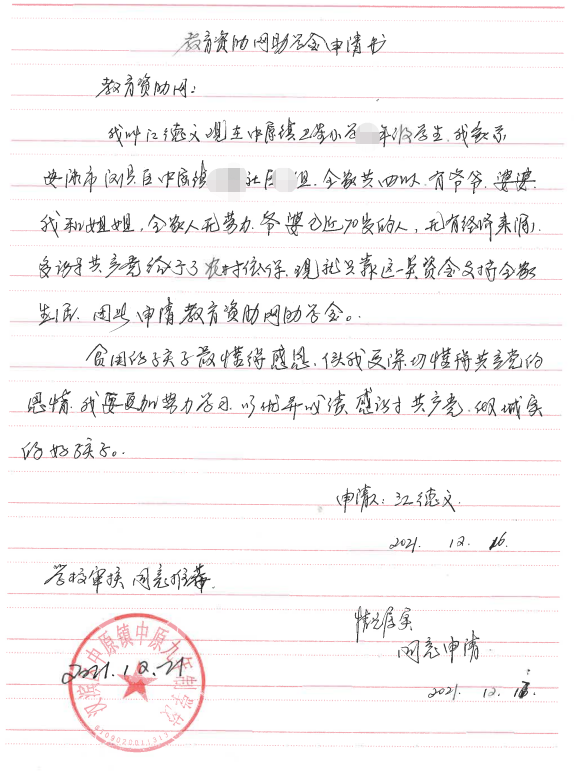 教育资助网助学金申请书
教育资助网:
我叫江德文现在中原镇卫星小学 年级学生.我家示
安康市汉滨区中原镇 社区 组.全家共四口人,有爷爷.婆婆.
我和姐姐,全家人无劳力.爷婆已近70岁的人,无有经济来源,
多谢于共产党给于了农村低保.现就只靠这一点资金支持全家
生活.因此申请教育资助网助学金。
贫困的孩子最懂得感恩.但我更深切懂得共产党的
恩情.我要更加努力学习.以优异成绩.感谢于共产党.做诚实
的好孩子。
申请人:江德文
2021. 12. 16.
学校审核 同意推荐.
情况属实
同意申请.
2021.12.21
2021. 12.
汉滨区中原镇中原九年制学校